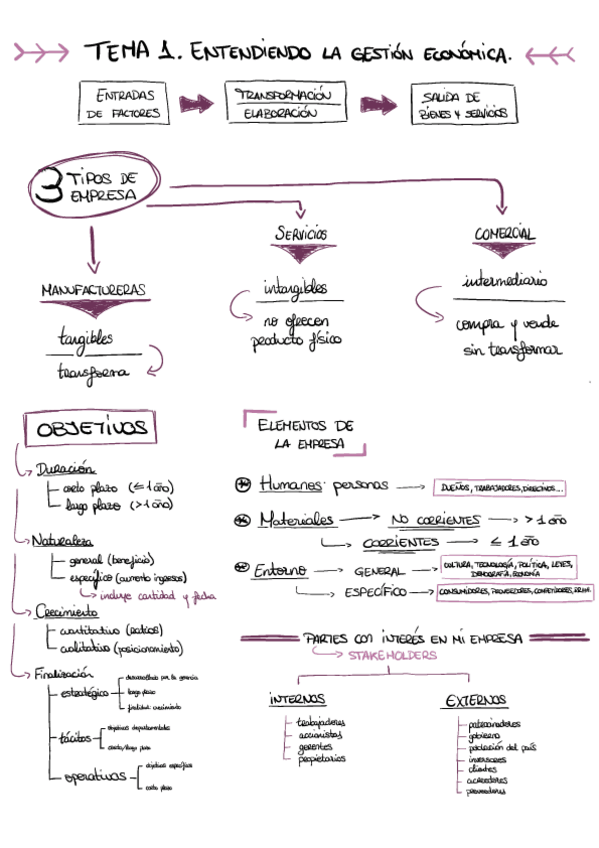 TEMA 1. ENTENDIENDO LA GESTIÓN ECONÓMICA.
ENTRADAS DE FACTORES
TRANSFORMACIÓN ELABORACIÓN
SALIDA DE BIENES Y SERVICIOS
3 TIPOS DE EMPRESA
MANUFACTURERAS
tangibles
transforma
SERVICIOS
intangibles
no ofrecen
producto físico
COMERCIAL
intermediario
compra y vende
sin transformar
OBJETIVOS
Duración
corto plazo (≤ 1 año)
largo plazo (> 1 año)
Naturaleza
general (beneficio)
específico (aumento ingresos)
incluye cantidad y fecha
Crecimiento
cuantitativo (ratios)
cualitativo (posicionamiento)
Finalización
estratégico
desarrollado por la gerencia
largo plazo
finalidad: crecimiento
tácitos
objetivos departamentales
corto/largo plazo
operativos
objetivos específicos
corto plazo
ELEMENTOS DE
LA EMPRESA
Humanos: personas
DUEÑOS, TRABAJADORES, DIRECTIVOS...
Materiales NO CORRIENTES > 1 año
CORRIENTES ≤ 1 año
Entorno GENERAL
CULTURA, TECNOLOGÍA, POLÍTICA, LEYES,
DEMOGRAFÍA, ECONOMÍA
ESPECÍFICO
CONSUMIDORES, PROVEEDORES, COMPETIDORES, RR.HH.
PARTES CON INTERÉS EN MI EMPRESA
STAKEHOLDERS
INTERNOS
trabajadores
accionistas
gerentes
propietarios
EXTERNOS
patrocinadores
gobierno
población del país
inversores
clientes
acreedores
proveedores